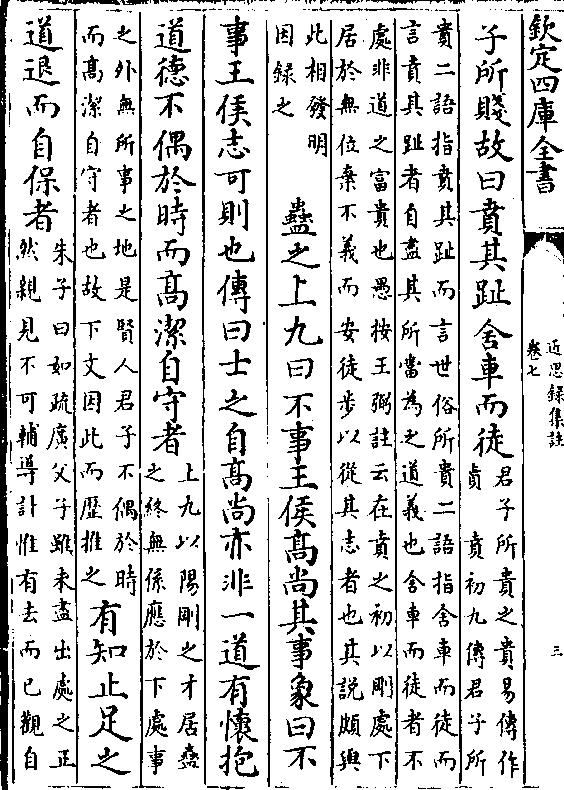 欽定四庫全書
近思錄集註
卷七
三
子所賤故曰賁其趾舍車而徒
君子所貴之貴易傳作
貞　賁初九傳君子所
賁二語指賁其趾而言世俗所貴二語指舍車而徒而
言賁其趾者自盡其所當為之道義也舍車而徒者不
處非道之富貴也愚按王弼註云在賁之初以剛處下
居於無位棄不義而安徒步以從其志者也其説頗與
此相發明
因録之
蠱之上九曰不事王侯髙尚其事象曰不
事王侯志可則也傳曰士之自髙尚亦非一道有懷抱
道德不偶於時而髙潔自守者
上九以陽剛之才居蠱
之終無係應於下處事
之外無所事之地是賢人君子不偶於時
而髙潔自守者也故下文因此而歴推之
有知止足之
道退而自保者
朱子曰如疏廣父子雖未盡出處之正
然親見不可輔導計惟有去而已觀自